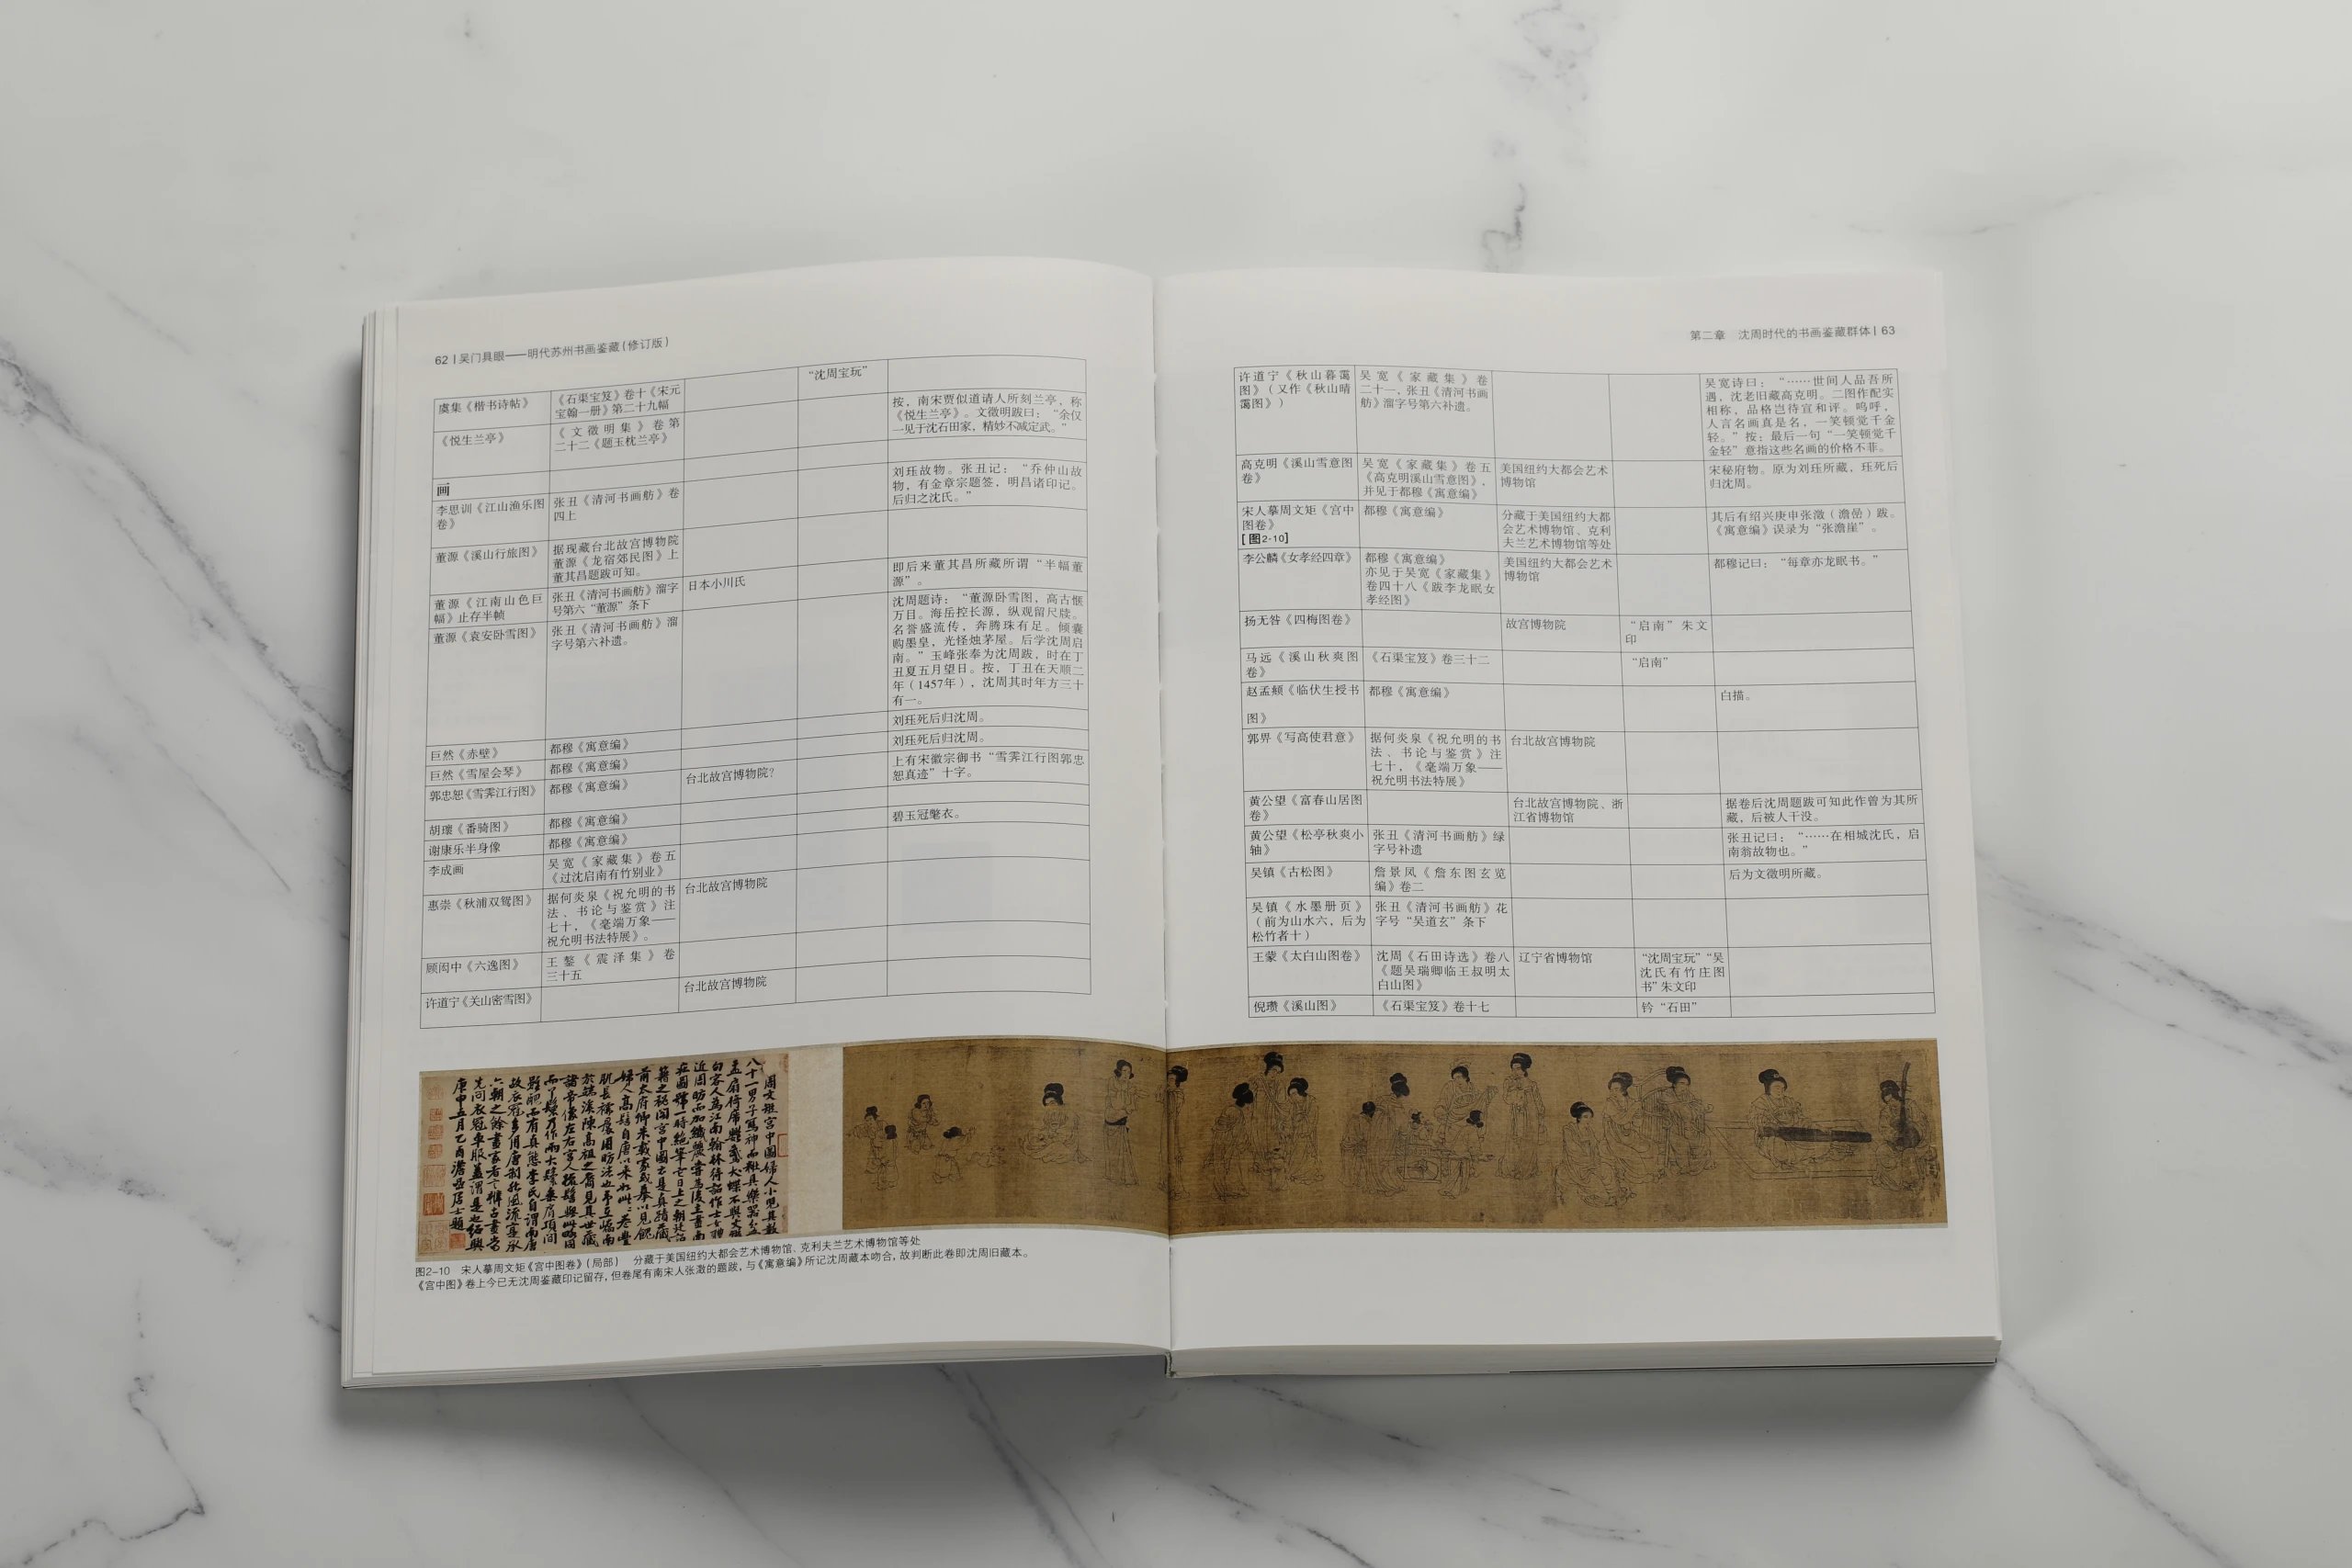 62 | 吴门具眼——明代苏州书画鉴藏(修订版)
虞集《楷书诗帖》
《石渠宝笈》卷十《宋元
宝翰一册》第二十九幅
“沈周宝玩”
《悦生兰亭》
《文徵明集》卷第
二十二《题玉枕兰亭》
按，南宋贾似道请人所刻兰亭，称
《悦生兰亭》。文徵明跋曰：“余仅
一见于沈石田家，精妙不减定武。”
画
李思训《江山渔乐图
卷》
张丑《清河书画舫》卷
四上
刘珏故物。张丑记：“乔仲山故
物，有金章宗题签，明昌诸印记。
后归之沈氏。”
董源《溪山行旅图》
据现藏台北故宫博物院
董源《龙宿郊民图》上
董其昌题跋可知。
即后来董其昌所藏所谓“半幅董
源”。
董源《江南山色巨
幅》止存半帧
张丑《清河书画舫》溜字
号第六“董源”条下
日本小川氏
董源《袁安卧雪图》
张丑《清河书画舫》溜
字号第六补遗。
沈周题诗：“董源卧雪图，高古惬
万目。海岳控长源，纵观留尺牍。
名誉盛流传，奔腾珠有足。倾囊
购墨皇，光怪烛茅屋。后学沈周启
南。”玉峰张奉为沈周跋，时在丁
丑夏五月望日。按，丁丑在天顺二
年（1457年），沈周其时年方三十
有一。
巨然《赤壁》
都穆《寓意编》
刘珏死后归沈周。
巨然《雪屋会琴》
都穆《寓意编》
刘珏死后归沈周。
郭忠恕《雪霁江行图》
都穆《寓意编》
台北故宫博物院？
上有宋徽宗御书“雪霁江行图郭忠
恕真迹”十字。
胡瓌《番骑图》
都穆《寓意编》
谢康乐半身像
都穆《寓意编》
碧玉冠氅衣。
李成画
吴宽《家藏集》卷五
《过沈启南有竹别业》
惠崇《秋浦双鸳图》
据何炎泉《祝允明的书
法、书论与鉴赏》注
七十，《毫端万象——
祝允明书法特展》。
台北故宫博物院
顾闳中《六逸图》
王鏊《震泽集》卷
三十五
许道宁《关山密雪图》
台北故宫博物院
第二章 沈周时代的书画鉴藏群体 | 63
许道宁《秋山暮霭
图》（又作《秋山晴
霭图》）
吴宽《家藏集》卷
二十一，张丑《清河书画
舫》溜字号第六补遗。
吴宽诗曰：“……世间人品吾所
遇，沈老旧藏高克明。二图作配实
相称，品格岂待宣和评。呜呼，
人言名画真是名，一笑顿觉千金
轻。”按：最后一句“一笑顿觉千
金轻”意指这些名画的价格不菲。
高克明《溪山雪意图
卷》
吴宽《家藏集》卷五
《高克明溪山雪意图》，
并见于都穆《寓意编》
美国纽约大都会艺术
博物馆
宋秘府物。原为刘珏所藏，珏死后
归沈周。
宋人摹周文矩《宫中
图卷》
[图2-10]
都穆《寓意编》
分藏于美国纽约大都
会艺术博物馆、克利
夫兰艺术博物馆等处
其后有绍兴庚申张澂（澹喦）跋。
《寓意编》误录为“张澹崖”。
李公麟《女孝经四章》
都穆《寓意编》
亦见于吴宽《家藏集》
卷四十八《跋李龙眠女
孝经图》
美国纽约大都会艺术
博物馆
都穆记曰：“每章亦龙眠书。”
扬无咎《四梅图卷》
故宫博物院
“启南”朱文
印
马远《溪山秋爽图
卷》
《石渠宝笈》卷三十二
“启南”
赵孟頫《临伏生授书
图》
都穆《寓意编》
白描。
郭畀《写高使君意》
据何炎泉《祝允明的书
法、书论与鉴赏》注
七十，《毫端万象——
祝允明书法特展》
台北故宫博物院
黄公望《富春山居图
卷》
台北故宫博物院、浙
江省博物馆
据卷后沈周题跋可知此作曾为其所
藏，后被人干没。
黄公望《松亭秋爽小
轴》
张丑《清河书画舫》绿
字号补遗
张丑记曰：“……在相城沈氏，启
南翁故物也。”
吴镇《古松图》
詹景凤《詹东图玄览
编》卷二
后为文徵明所藏。
吴镇《水墨册页》
（前为山水六，后为
松竹者十）
张丑《清河书画舫》花
字号“吴道玄”条下
王蒙《太白山图卷》
沈周《石田诗选》卷八
《题吴瑞卿临王叔明太
白山图》
辽宁省博物馆
“沈周宝玩”“吴
沈氏有竹庄图
书”朱文印
倪瓒《溪山图》
《石渠宝笈》卷十七
钤“石田”
周文矩宫中圖婦人小兒其數
八十一男子寫神而裝具樂器盆
盂扇椅席鸚鵡犬蝶不與文矩
句容人為江南翰林待詔作士女體
近周昉而加纖麗嘗為後主畫南
莊圖號一時絕筆他日上之朝廷詔
籍之秘閣宮中圖云是真蹟藏
前太府卿朱載家或摹以見餽
婦人高髻自唐以來如此此卷豐
肌長襟裾周昉法也予自嶠南
於端溪陳高祖之裔見其世藏
諸帝像左右宮人梳髻與此略同
而丫鬟乃作兩大鬟垂肩項間
雖醜而有真態李氏自謂南唐
故衣冠多用唐制然風流實承
六朝之餘畫家者言辨古畫當
先問衣冠車服蓋謂是也紹興
庚申五月乙酉澹喦居士題
图2-10 宋人摹周文矩《宫中图卷》（局部） 分藏于美国纽约大都会艺术博物馆、克利夫兰艺术博物馆等处
《宫中图》卷上今已无沈周鉴藏印记留存，但卷尾有南宋人张澂的题跋，与《寓意编》所记沈周藏本吻合，故判断此卷即沈周旧藏本。